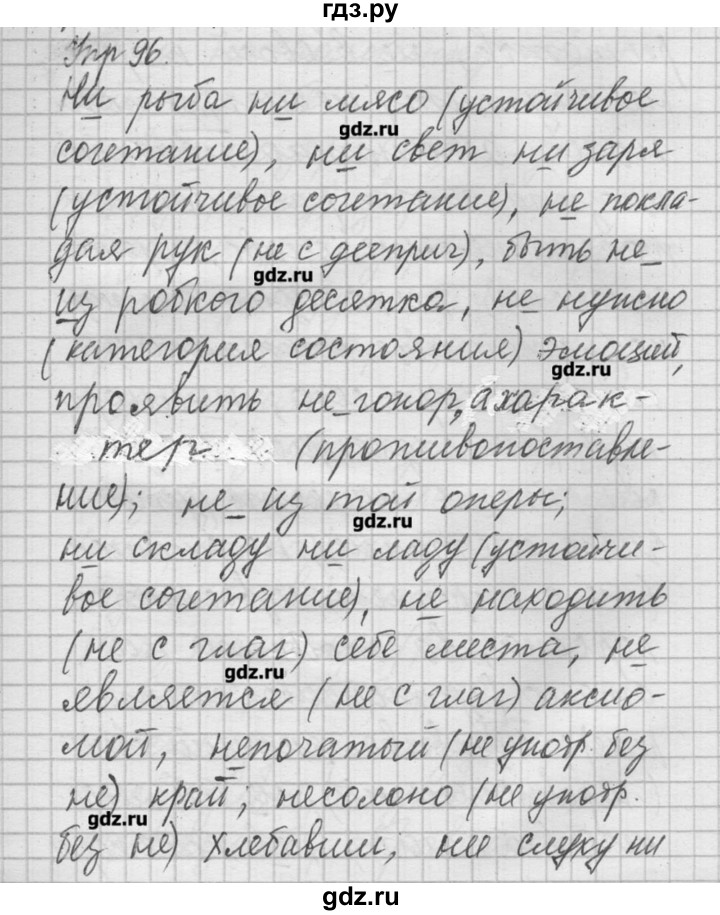 гдз.ру
Упр 96.
Ни рыба ни мясо (устойчивое
gdz.ru
сочетание), ни свет ни заря
(устойчивое сочетание), не покла-
дая рук (не с дееприч), быть не
gdz.ru
из робкого десятка, не нужно
(категория состояния) эмоций,
gdz.ru
проявить не гонор, а харак-
тер (противопоставле-
ние); не из той оперы;
gdz.ru
ни складу ни ладу (устойчи-
вое сочетание), не находить
(не с глаг) себе места, не
gdz.ru
является (не с глаг) аксио-
мой, непочатый (не употр. без
не) край; несолоно (не употр.
gdz.ru
без не) хлебавши; ни слуху ни
gdz.ru